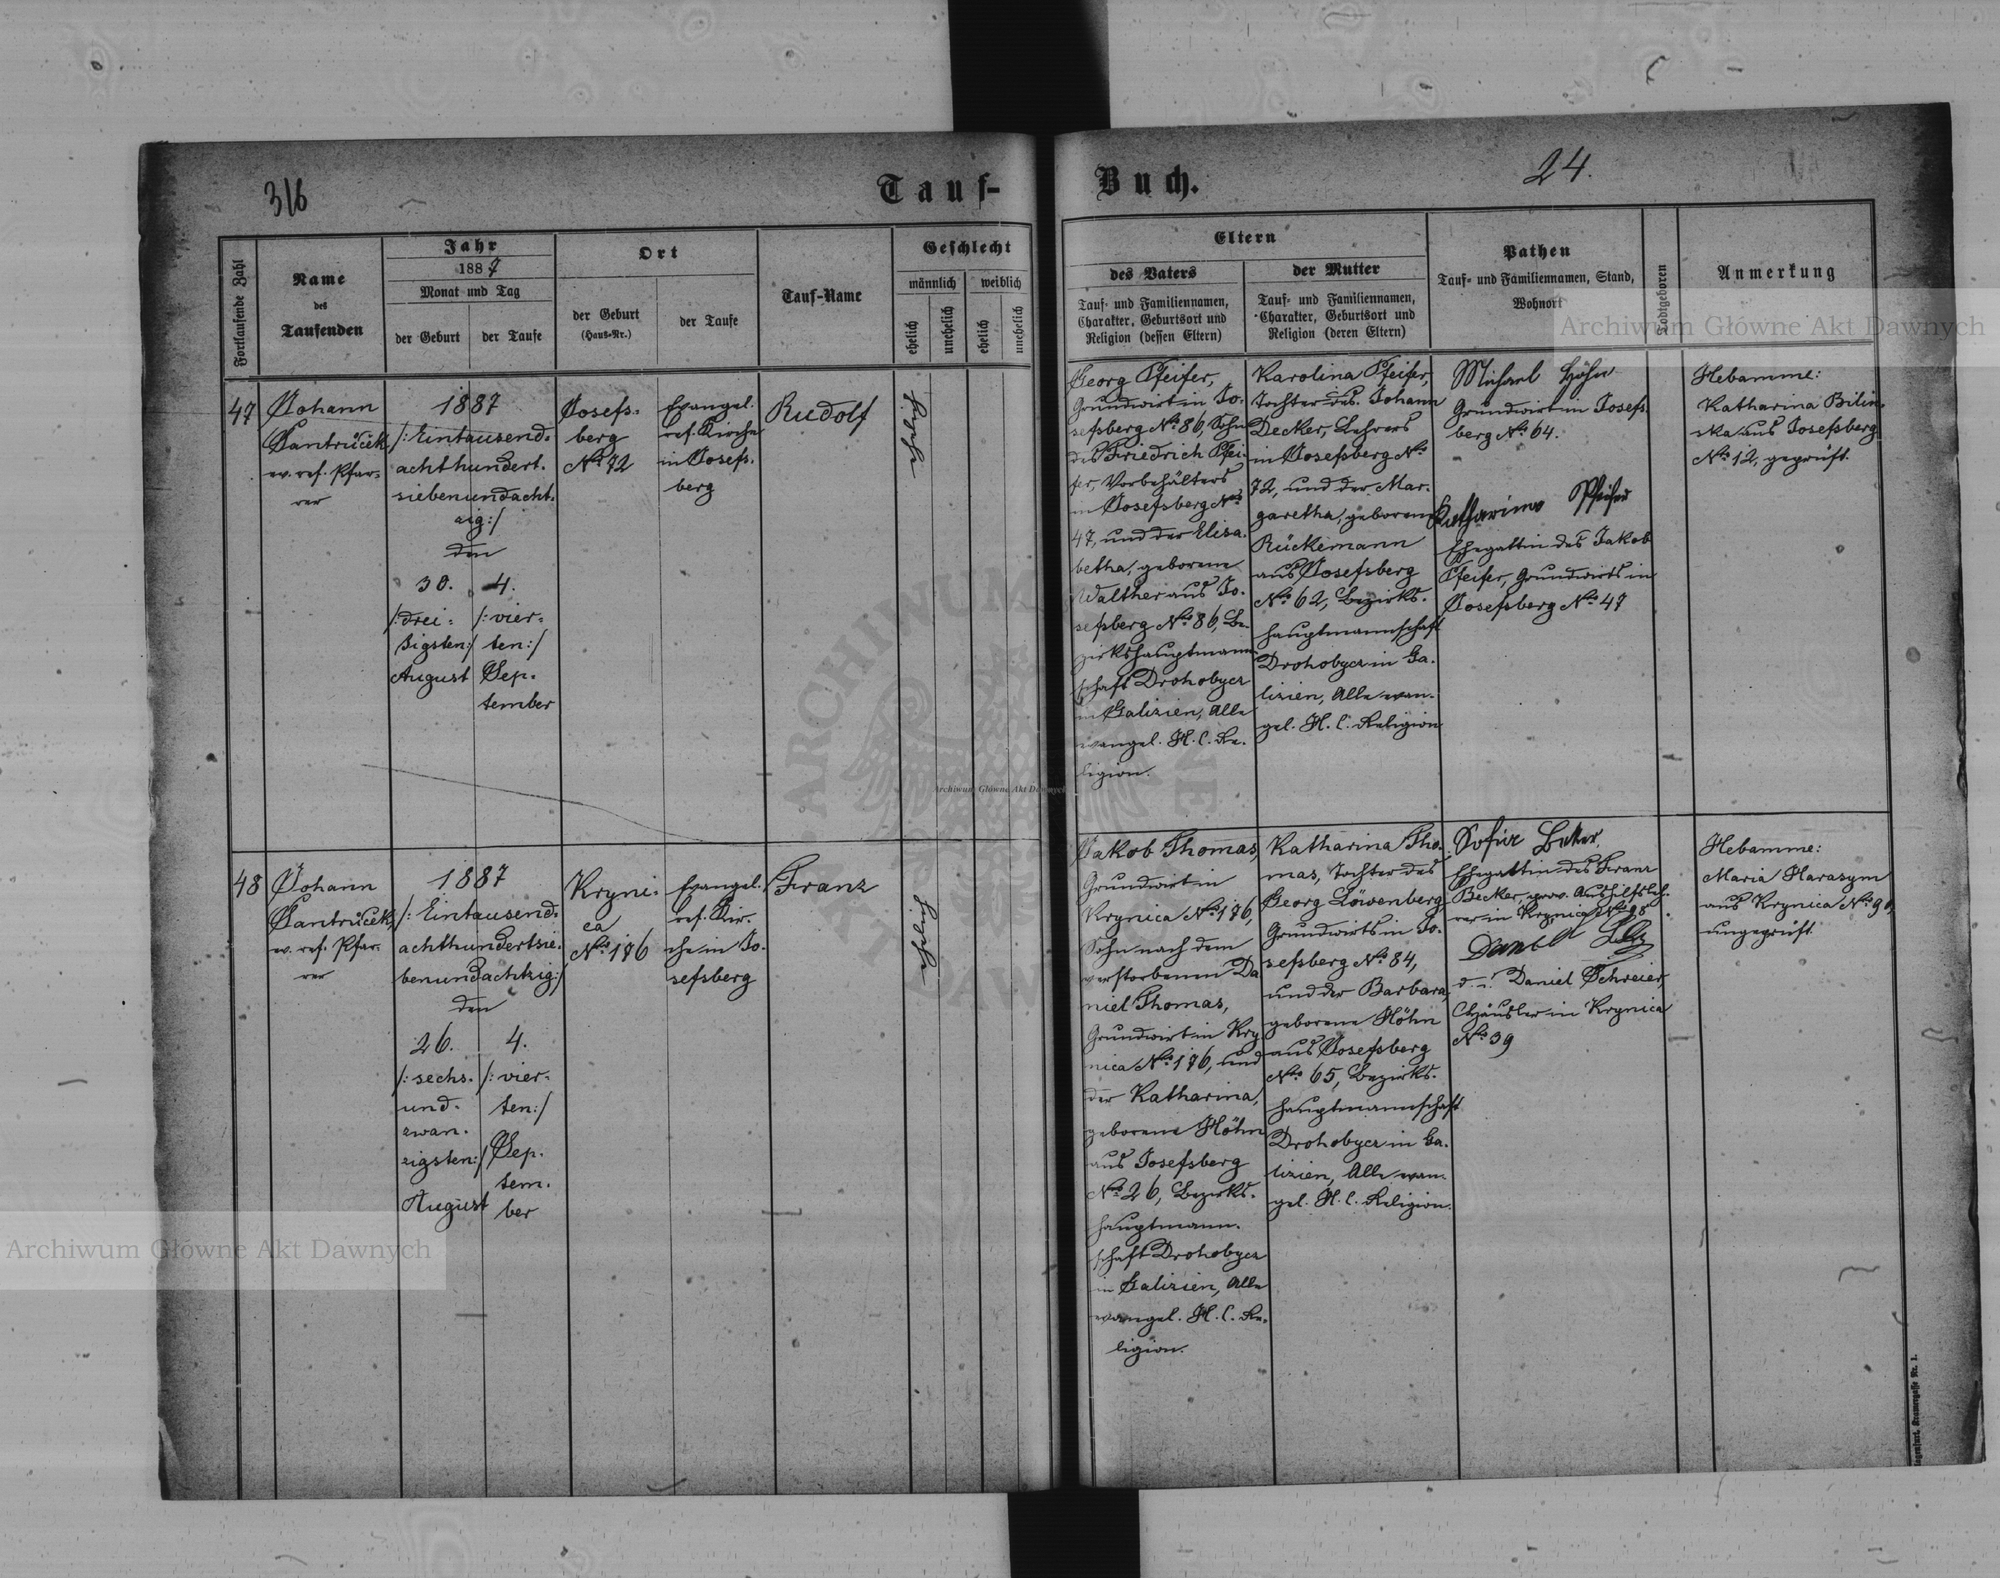 316
Tauf-
Buch.
24.
Fortlaufende Zahl
Name
des
Taufenden
Jahr
1887
Monat und Tag
der Geburt
der Taufe
Ort
der Geburt
(Haus-Nr.)
der Taufe
Tauf-Name
Geschlecht
männlich
weiblich
ehelich
unehelich
ehelich
unehelich
Eltern
des Vaters
Tauf- und Familiennamen,
Charakter, Geburtsort und
Religion (dessen Eltern)
der Mutter
Tauf- und Familiennamen,
Charakter, Geburtsort und
Religion (deren Eltern)
Pathen
Tauf- und Familiennamen, Stand,
Wohnort
Todtgeboren
Anmerkung
47
Johann
Jantriček
ev. ref. Pfar-
rer
1887
/: Eintausend-
achthundert-
siebenundacht-
zig :/
den
30.
/: drei-
sigsten :/
August
4.
/: vier-
ten :/
Sep-
tember
Josefs-
berg
No 72
Evangel.
ref. Kirche
in Josefs-
berg
Rudolf
Georg Pfeifer,
Grundwirt in Jo-
sefsberg No 86, Sohn
des Friedrich Pfei-
fer, Vorbehälters
in Josefsberg No
47, und der Elisa-
betha, geborene
Walther aus Jo-
sefsberg No 86, Be-
zirkshauptmann-
schaft Drohobycz
in Galizien, Alle
evangel. H. C. Re-
ligion.
Karolina Pfeifer,
Tochter des Johann
Decker, Lehrers
in Josefsberg No
72, und der Mar-
garetha, geborene
Rückemann
aus Josefsberg
No 62, Bezirks-
hauptmannschaft
Drohobycz in Ga-
lizien, Alle evan-
gel. H. C. Religion
Michael Höhn
Grundwirt in Josefs-
berg No 64.
Katharina Pfeifer
Ehegattin des Jakob
Pfeifer, Grundwirts in
Josefsberg No 47
Hebamme:
Katharina Bilin-
ska aus Josefsberg
No 12, geprüft.
48
Johann
Jantriček,
ev. ref. Pfar-
rer
1887
/: Eintausend-
achthundertsie-
benundachtzig :/
den
26.
/: sechs-
und-
zwan-
zigsten :/
August
4.
/: vier-
ten :/
Sep-
tem-
ber
Kryni-
ca
No 176
Evangel.
ref. Kir-
che in Jo-
sefsberg
Franz
Jakob Thomas,
Grundwirt in
Krynica No 176,
Sohn nach dem
verstorbenen Da
niel Thomas,
Grundwirt in Kry
nica No 176, und
der Katharina,
geborene Höhn
aus Josefsberg
No 26, Bezirks-
hauptmann-
schaft Drohobycz
in Galizien, Alle
evangel. H. C. Re-
ligion.
Katharina Tho-
mas, Tochter des
Georg Löwenberg
Grundwirts in Jo-
sefsberg No 84,
und der Barbara,
geborene Höhn
aus Josefsberg
No 65, Bezirks-
hauptmannschaft
Drohobycz in Ga-
lizien, Alle evan-
gel. H. C. Religion.
Sofie Beker,
Ehegattin des Franz
Becker, prov. Aushilfsleh-
rer in Krynica No 98
Daniel
Daniel Schreier,
Häusler in Krynica
No 39
Hebamme:
Maria Harasym
aus Krynica No 90,
ungeprüft
Archiwum Główne Akt Dawnych
Archiwum Główne Akt Dawnych
Archiwum Główne Akt Dawnych